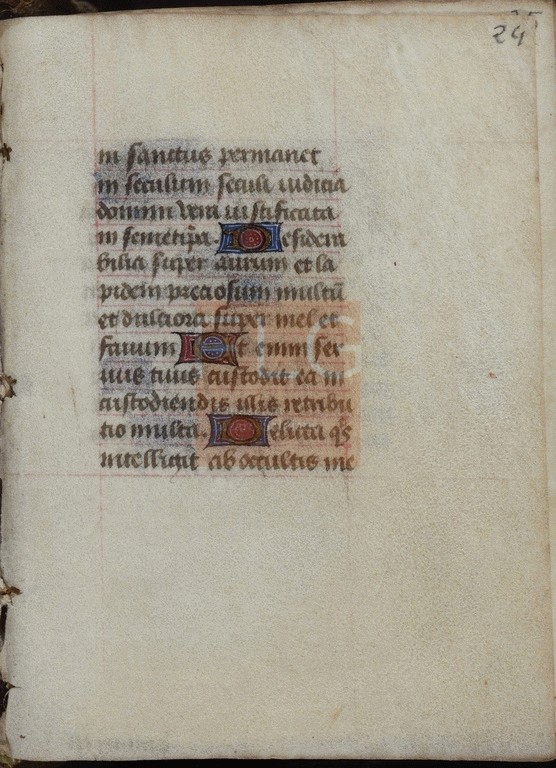 24
ni sanctus permanet
in seculum seculi iudicia
domini vera iustificata
in semetipa. Desidera
bilia super aurum et la
pidem preciosum multū
et dulciora super mel et
fauum Et enim ser
uus tuus custodit ea in
custodiendis illis retribu
tio multa. Delicta qs
intelligit ab occultis me